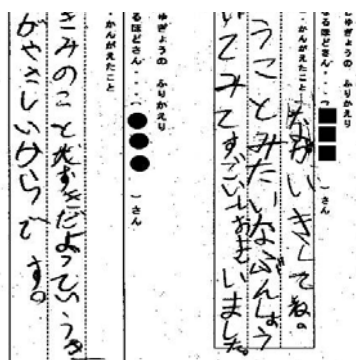 じゅぎょうの ふりかえり
なるほどさん・・・( ■■■ ) さん
・かんがえたこと ながいきしてね。
うことみたいなぶんしょう
いてみてすごいとおもいました。
じゅぎょうの ふりかえり
なるほどさん・・・( ●●● ) さん
・かんがえたこと
きみのこと大すきだよっていうき
がやさしいからです。